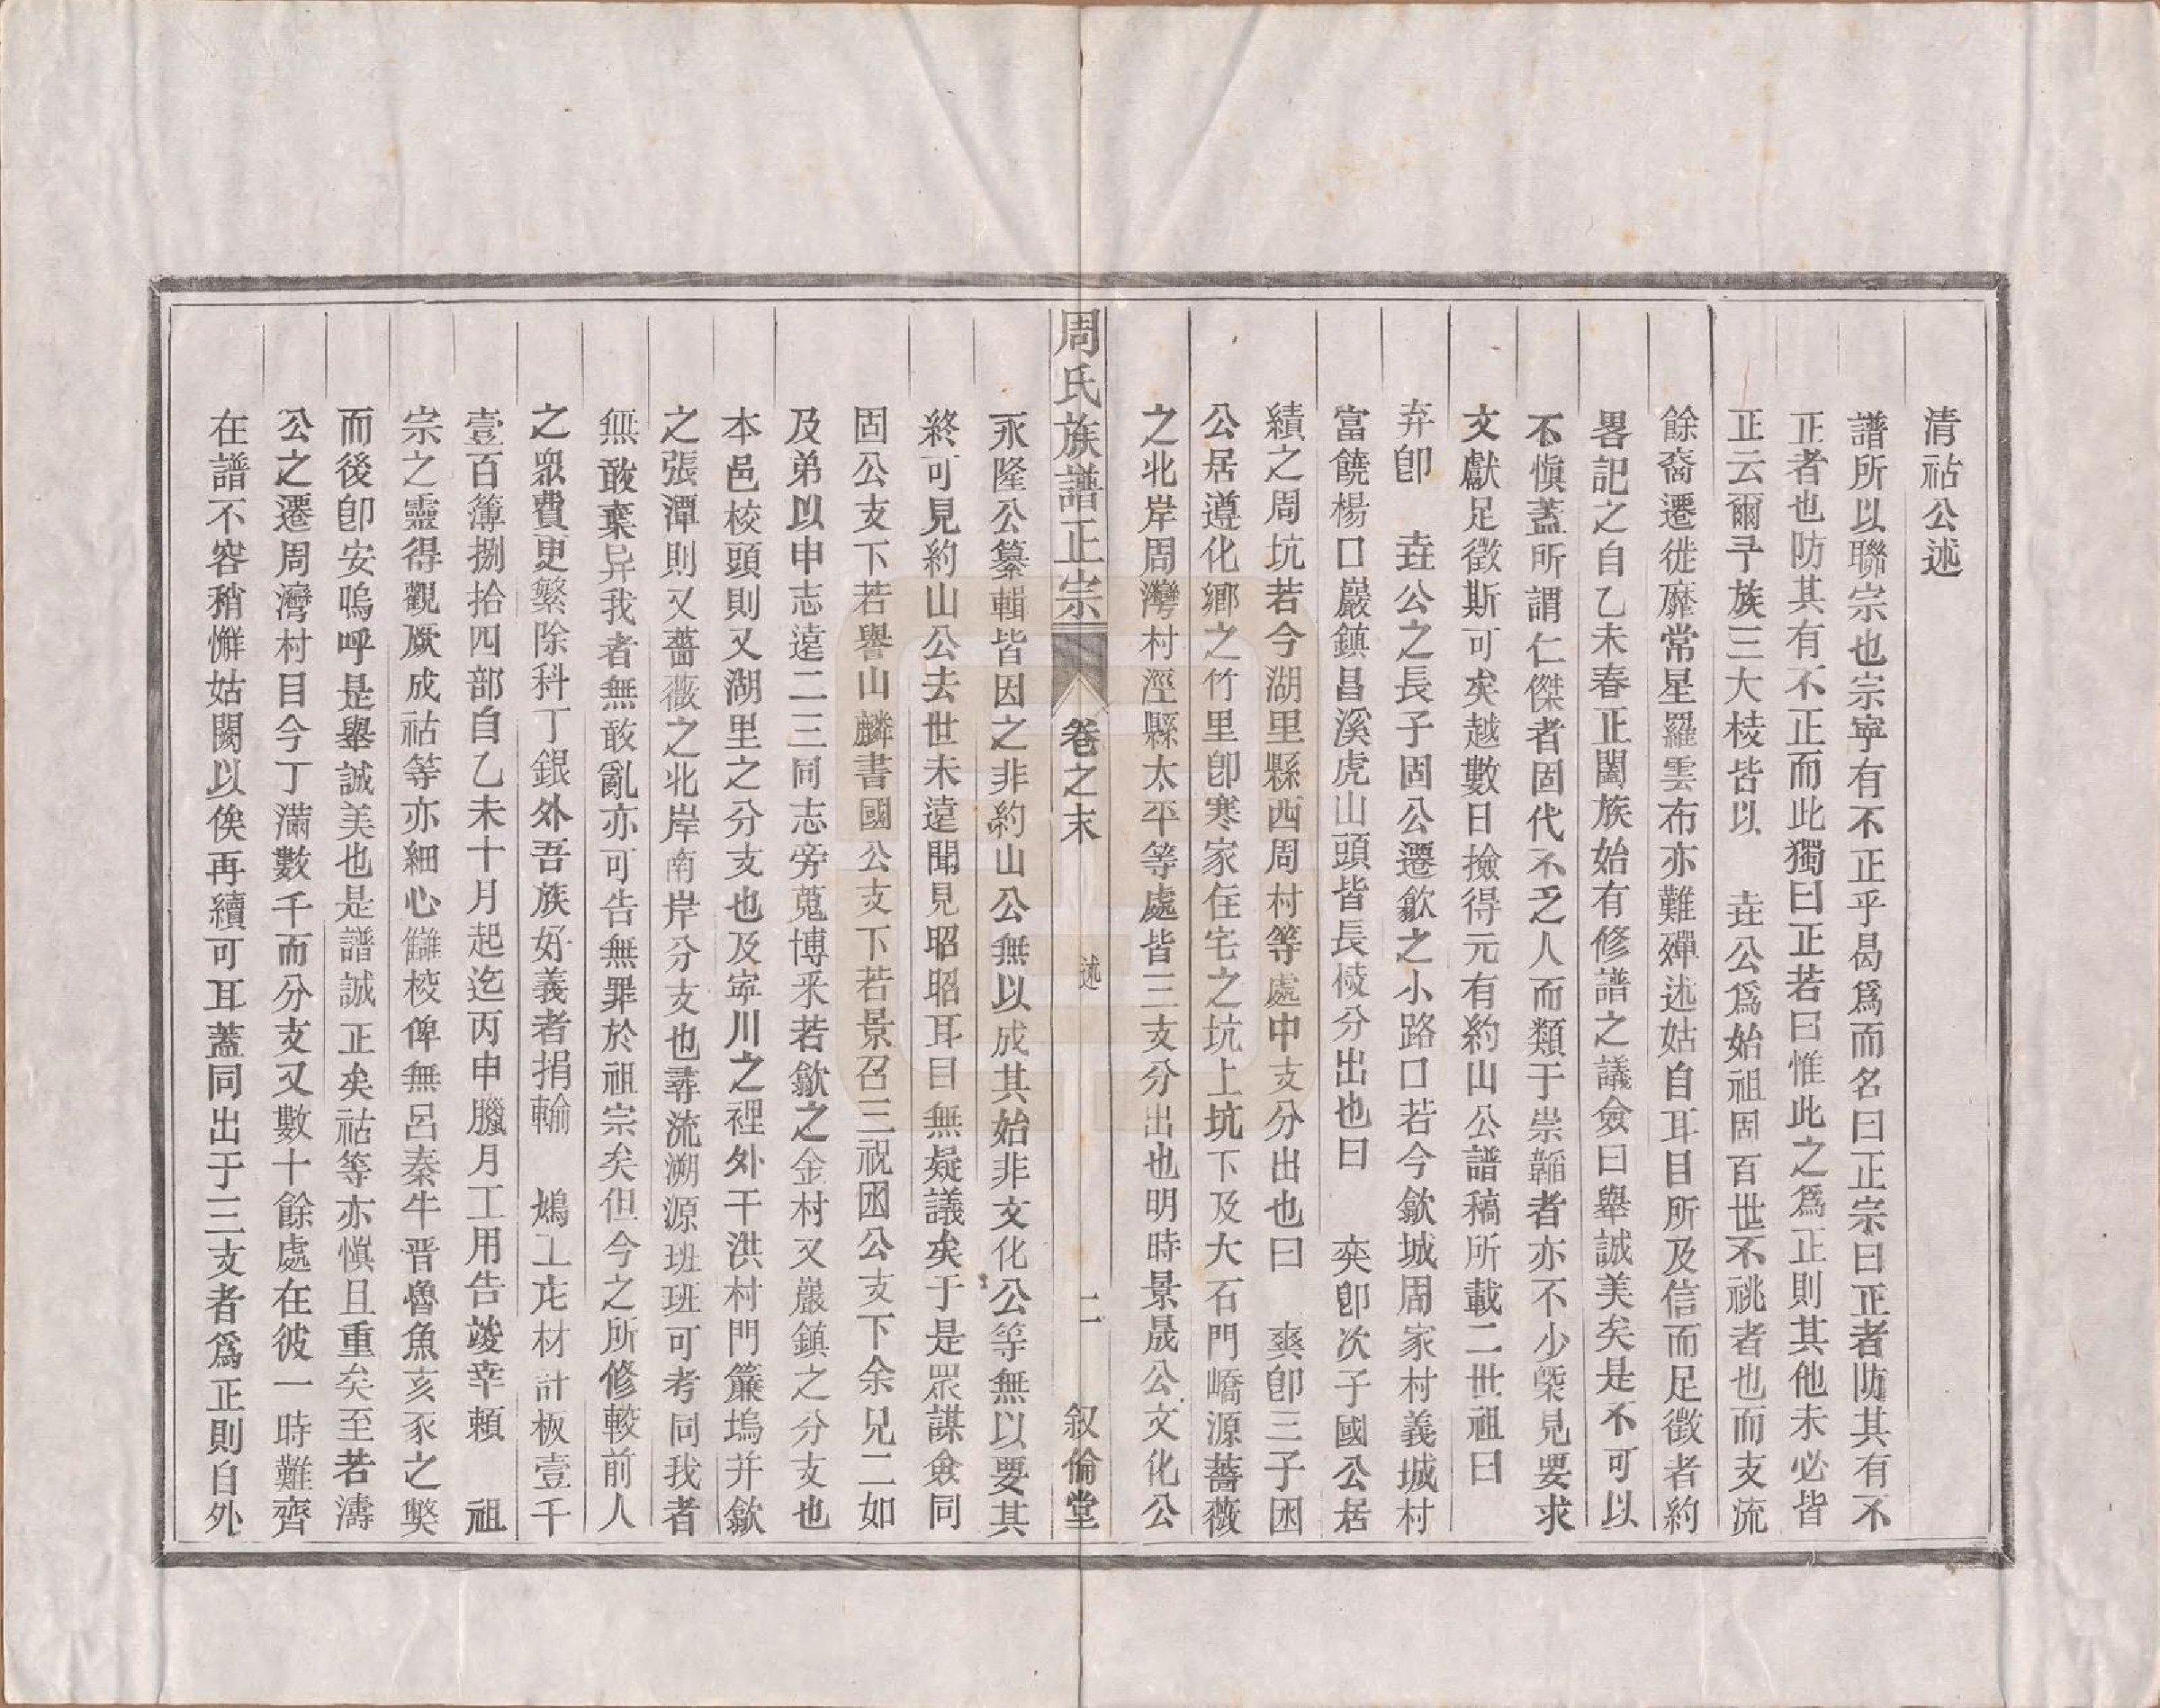 清祜公述
譜所以聯宗也宗寧有不正乎曷爲而名曰正宗曰正者防其有不
正者也防其有不正而此獨曰正若曰惟此之爲正則其他未必皆
正云爾予族三大棱皆以　垚公爲始祖固百世不祧者也而支流
餘裔遷徙靡常星羅雲布亦難殫述姑自耳目所及信而足徵者約
畧記之自乙未春正闔族始有修譜之議僉曰舉誠美矣是不可以
不愼蓋所謂仁傑者固代不乏人而類于崇韜者亦不少槩見要求
文獻足徵斯可矣越數日撿得元有約山公譜稿所載二世祖曰
弃卽　垚公之長子固公遷歙之小路口若今歙城周家村義城村
富饒楊口巖鎮昌溪虎山頭皆長棱分出也曰　奕卽次子國公居
績之周坑若今湖里縣西周村等處中支分出也曰　爽卽三子困
公居遵化鄉之竹里卽寒家住宅之坑上坑下及大石門嶠源薔薇
之北岸周灣村涇縣太平等處皆三支分出也明時景晟公文化公
周氏族譜正宗　卷之末　述　二　叙倫堂
永隆公纂輯皆因之非約山公無以成其始非文化公等無以要其
終可見約山公去世未遠聞見昭昭耳目無疑議矣于是眾謀僉同
固公支下若譽山麟書國公支下若景召三祝困公支下余兄二如
及弟以申志遠二三同志旁蒐博采若歙之金村又巖鎮之分支也
本邑校頭則又湖里之分支也及寧川之裡外干洪村門簾塢并歙
之張潭則又薔薇之北岸南岸分支也尋流溯源班班可考同我者
無敢棄异我者無敢亂亦可告無罪於祖宗矣但今之所修較前人
之眾費更繁除科丁銀外吾族好義者捐輸　鳩工庀材計板壹千
壹百簿捌拾四部自乙未十月起迄丙申臘月工用告竣幸賴　祖
宗之靈得觀厥成祜等亦細心讎校俾無呂秦牛晋魯魚亥豕之獘
而後卽安嗚呼是舉誠美也是譜誠正矣祜等亦愼且重矣至若濤
公之遷周灣村目今丁滿數千而分支又數十餘處在彼一時難齊
在譜不容稍懈姑闕以俟再續可耳蓋同出于三支者爲正則自外